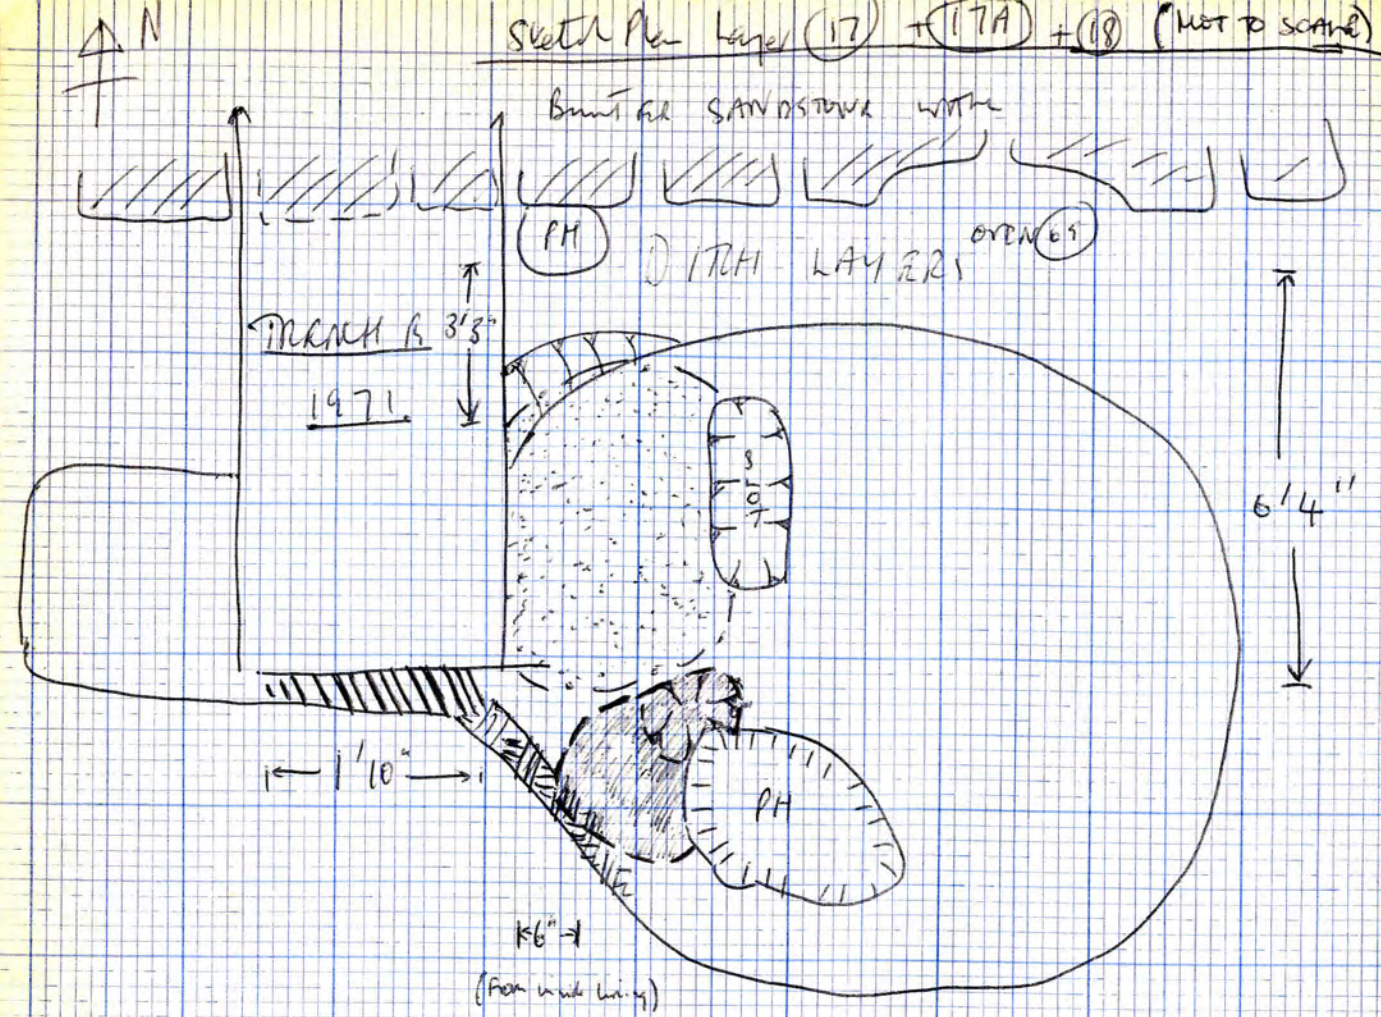 N
Sketch Plan Layer 17 + 17A + 18 (NOT TO SCALE)
BUNTER SANDSTONE WITH
PH
DITCH LAYERS
OVEN 69
TRENCH B 3'3"
1971.
SLOT
6'4"
1'10"
PH
6"
(From inside lining)